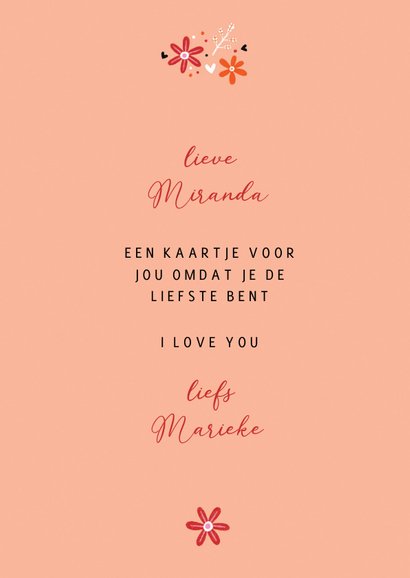 lieve
Miranda
EEN KAARTJE VOOR
JOU OMDAT JE DE
LIEFSTE BENT
I LOVE YOU
liefs
Marieke